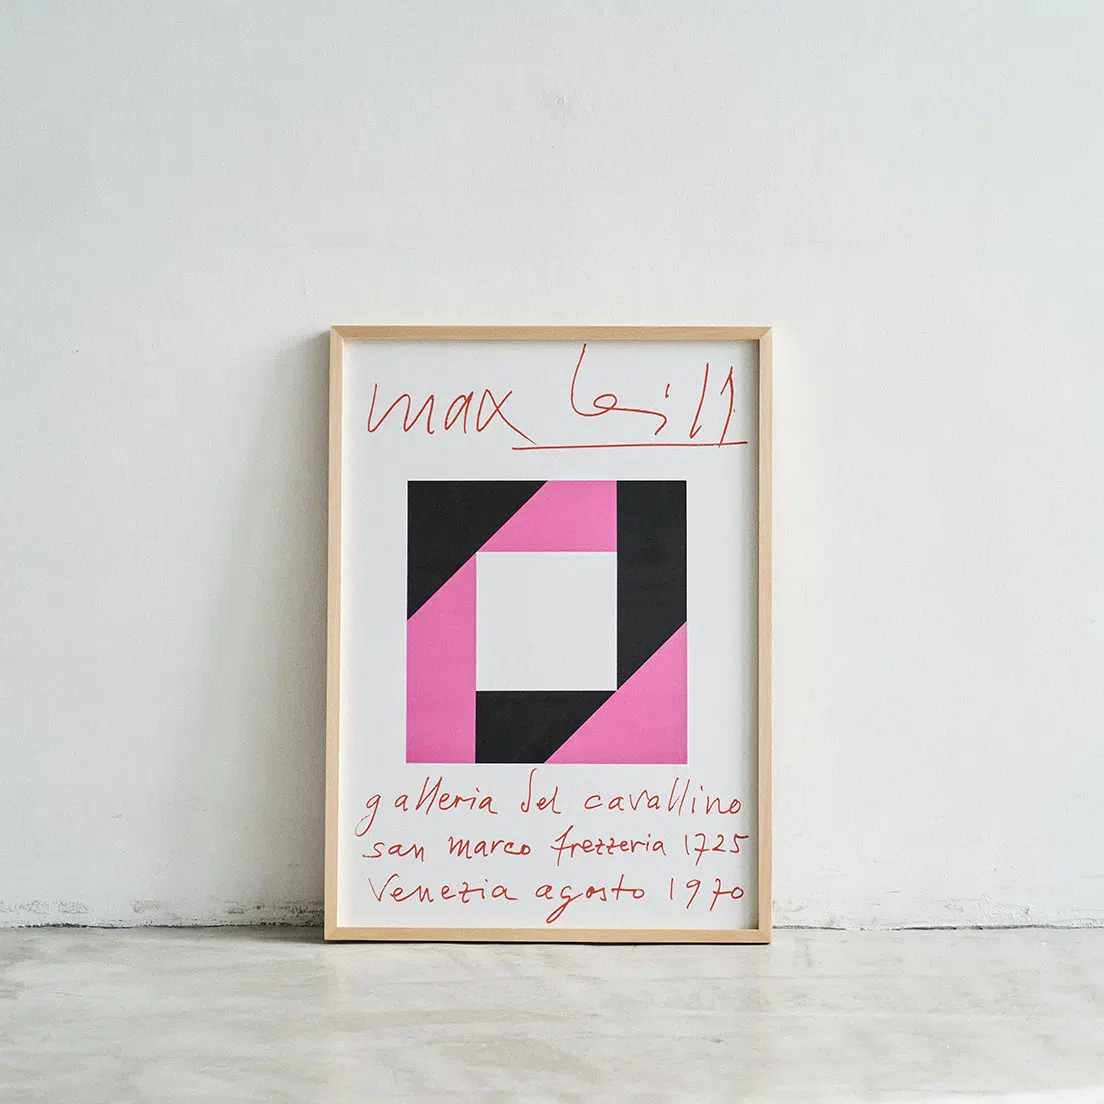 max bill
galleria del cavallino
san marco frezzeria 1725
Venezia agosto 1970